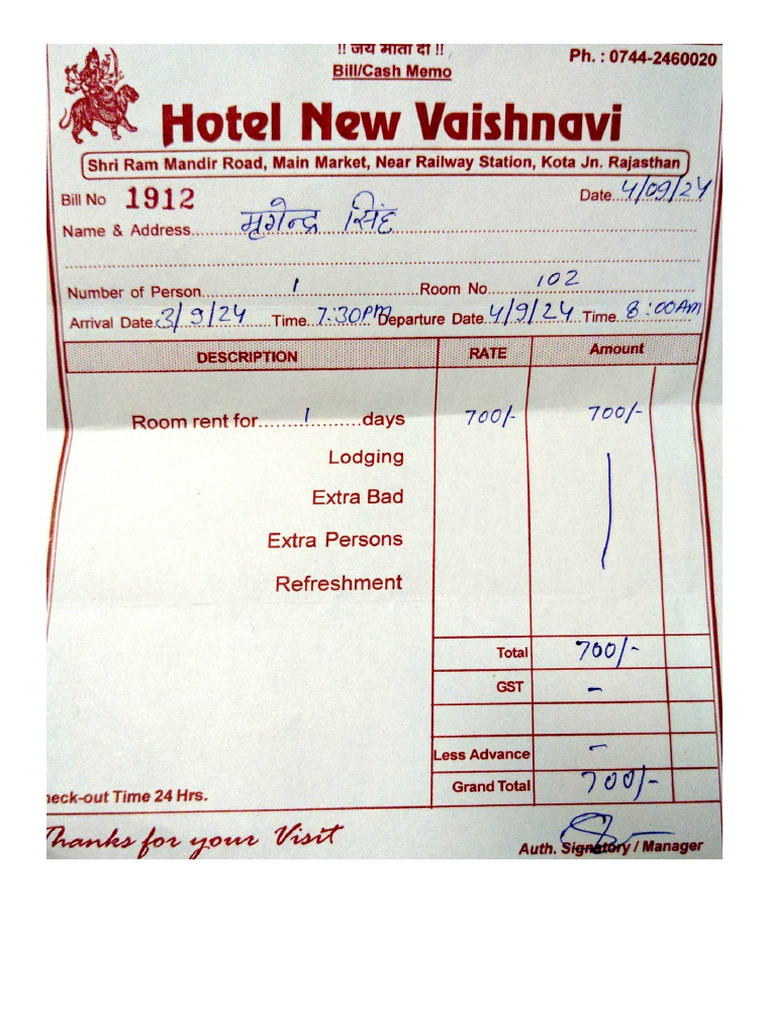 !! जय माता दी !!
Bill/Cash Memo
Ph. : 0744-2460020
Hotel New Vaishnavi
Shri Ram Mandir Road, Main Market, Near Railway Station, Kota Jn. Rajasthan
Bill No 1912 Date...4/09/24
Name & Address......मृगेन्द्र सिंह
Number of Person......1......Room No......102
Arrival Date 3/9/24 Time 7:30PM Departure Date 4/9/24 Time 8:00AM
DESCRIPTION RATE Amount
Room rent for......1......days 700/- 700/-
Lodging
Extra Bad
Extra Persons
Refreshment
Total 700/-
GST -
Less Advance -
Grand Total 700/-
heck-out Time 24 Hrs.
Thanks for your Visit
Auth. Signatory / Manager